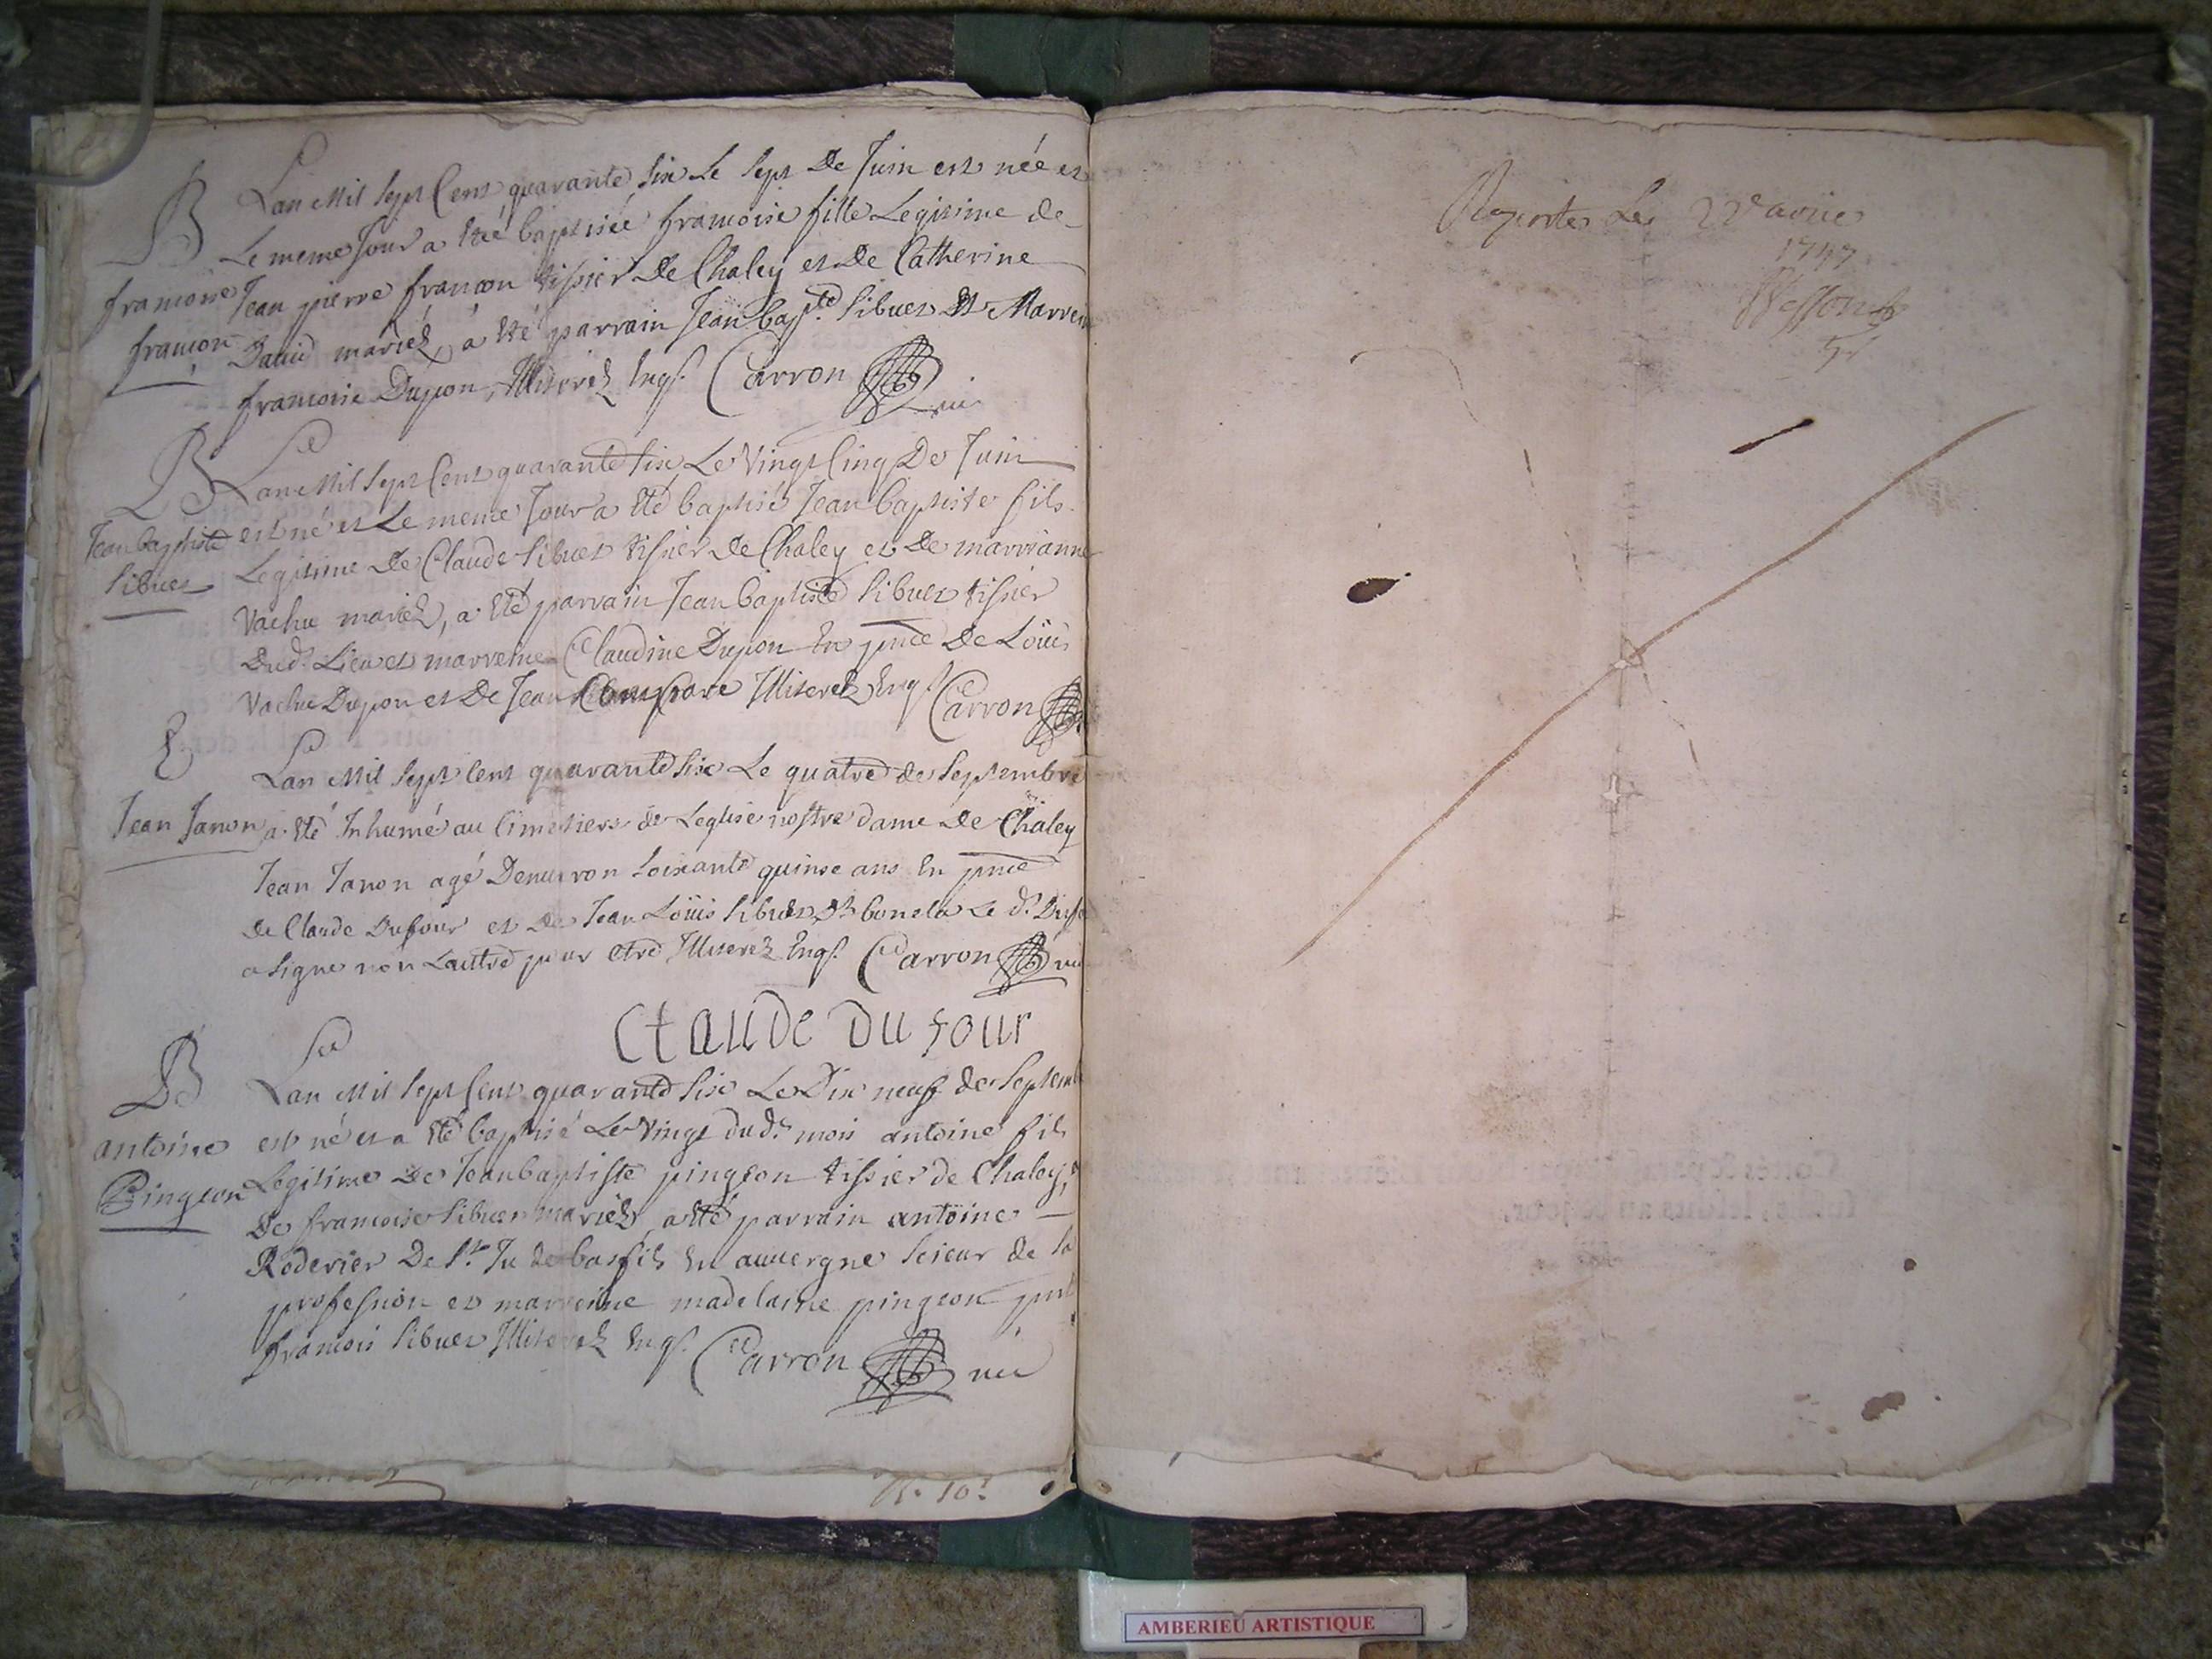 B
francoise
francon
Lan Mil sept Cent quarante six Le sept De Juin est née et
Le meme Jour a été baptisée francoise fille Legitime de
Jean pierre francon tissier De Chaley et De Catherine
David mariéz, a été parrain Jean bapte. sibuet Et Marreine
francoise Dupon, Illiterez Enqs. Carron
B
Jean baptiste
sibuet
Lan Mil sept Cent quarante six Le vingt Cinq De Juin
est né et Le meme Jour a Eté baptisé Jean baptiste fils
Legitime De Claude sibuet tissier De Chaley et De marrianne
Vachu mariéz, a Eté parrain Jean baptiste sibuet tissier
Dud. Lieu et marreine Claudine Dupon En pnce De Loüis
Vachu Dupon et De Jean Illiterez Enqs. Carron
Jean Janon
Lan Mil sept Cent quarante six Le quatre de septembre
a Eté Inhumé au Cimetiere de Leglise nostre dame De Chaley
Jean Janon agé Denuiron soixante quinse ans En pnce
de Claude Dufour et De Jean Loüis sibuet Le d.
a signe non Lautre pour Etre Illiterez Enqs. Carron
Claude Dufour
B
antoine
Pingeon
Lan Mil sept Cent quarante six Le Dix neuf de Septem
est né et a Eté baptisé Le vingt dud. mois antoine fils
Legitime De Jean baptiste pingeon tissier de Chaley, et
De francoise sibuet mariéz, a Eté parrain antoine
Roderier De st. en auuergne scieur de sa
profession et marreine madelaine pingeon
francois sibuet Illiterez Enqs. Carron
Le 22e auril
1747
AMBERIEU ARTISTIQUE